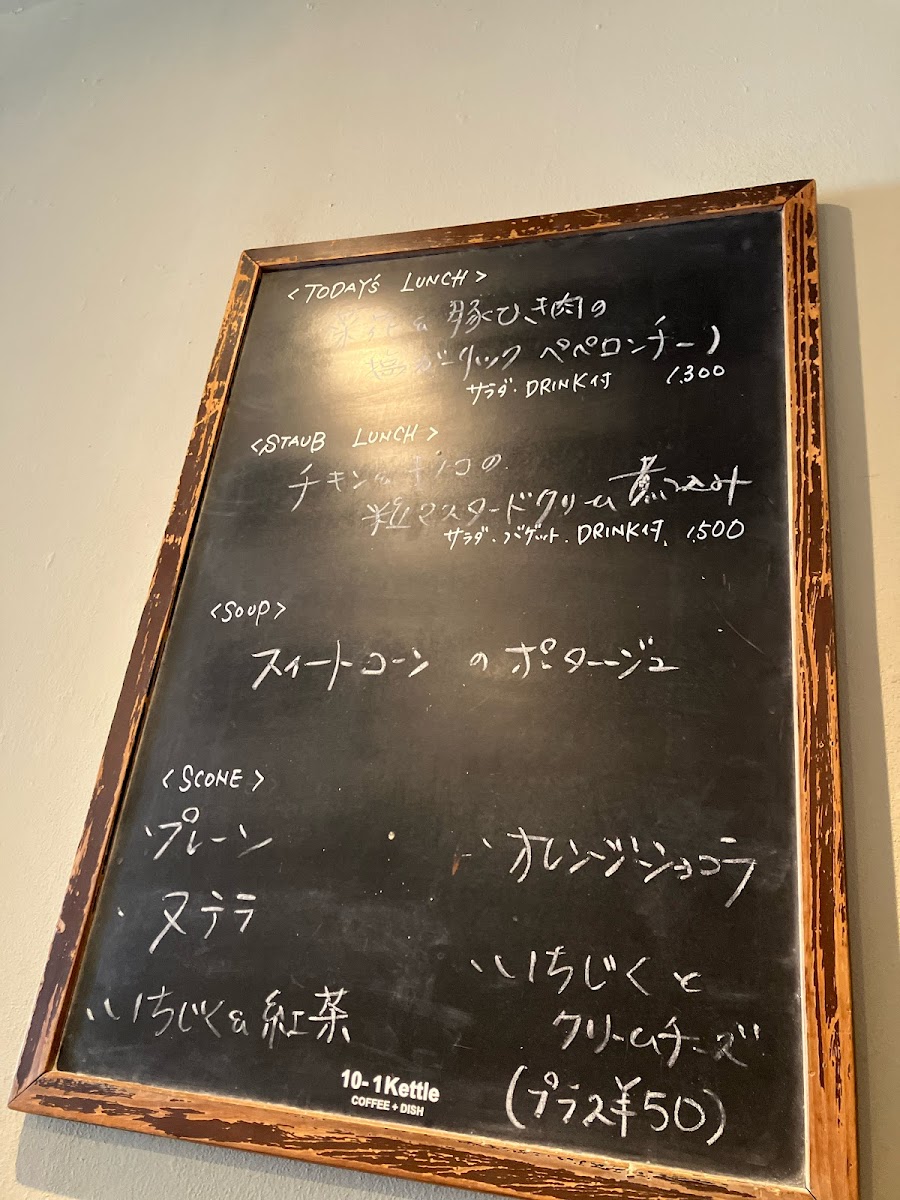 <TODAY's LUNCH>
菜花&豚ひき肉の
塩ガーリック ペペロンチーノ
サラダ・DRINK付 1,300
<STAUB LUNCH>
チキン&キノコの
粒マスタードクリーム煮込み
サラダ・バゲット・DRINK付 1,500
<SOUP>
スィートコーン の ポタージュ
<SCONE>
・プレーン
・ヌテラ
・いちじく&紅茶
・オレンジショコラ
・いちじくと
クリームチーズ
(プラス¥50)
10-1Kettle
COFFEE + DISH